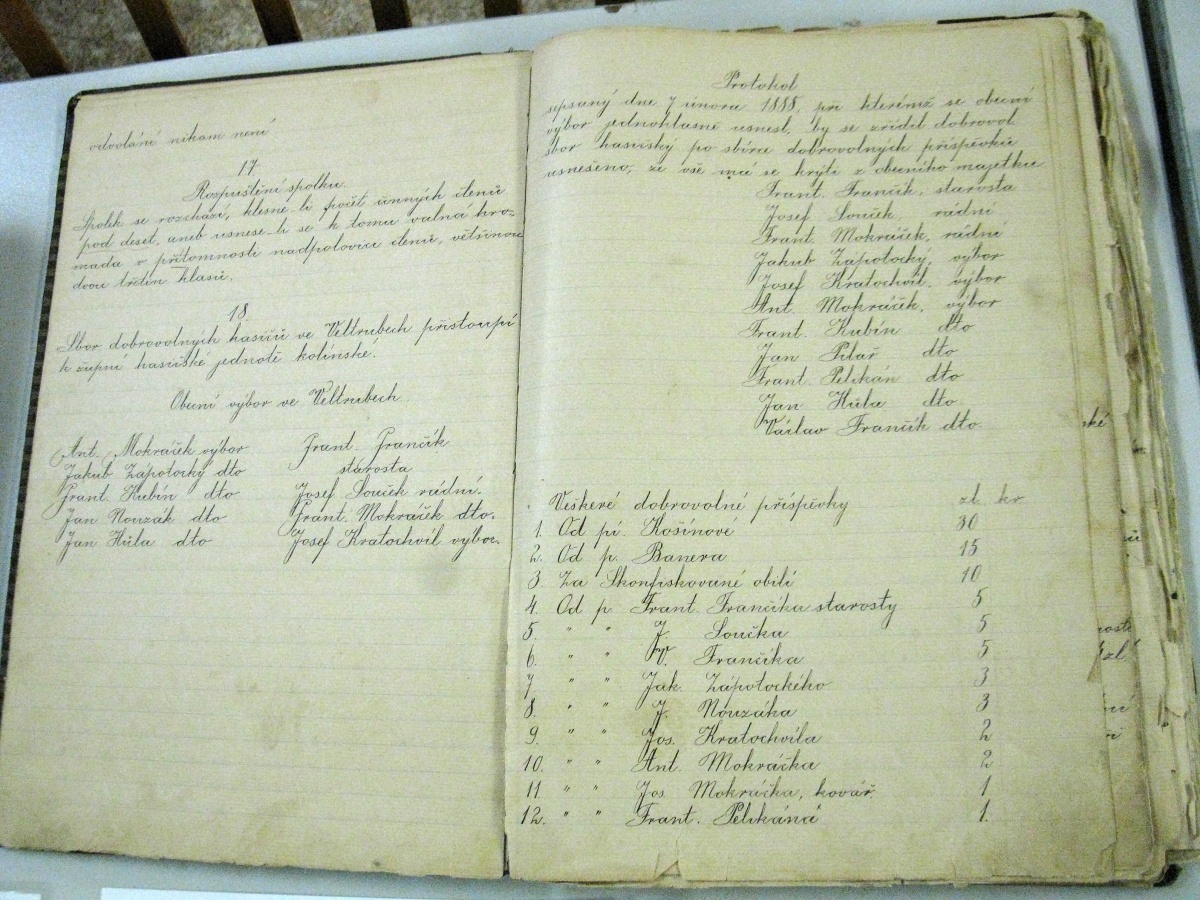 odvolání nikam není
17
Rozpuštění spolku.
Spolek se rozchází, klesne-li počet činných členů
pod deset, aneb usnese-li se k tomu valná hro-
mada v přítomnosti nadpolovice členů, většinou
dvou třetin hlasů.
18.
Sbor dobrovolných hasičů ve Veltrubech přistoupí
k župní hasičské jednotě kolínské.
Obecní výbor ve Veltrubech.
Ant. Mokráček výbor
Jakub Zápotocký dto
Frant. Kubín dto
Jan Nouzák dto
Jan Hůla dto
Frant. Francík
stárosta
Josef Souček rádní.
Frant. Mokráček dto.
Josef Kratochvíl výbor.
Protokol
sepsaný dne 7 února 1888, při kterémž se obecní
výbor jednohlasně usnesl, by se zřídil dobrovol.
sbor hasičský po sbírce dobrovolných příspěvků
usnešeno, že vše má se krýti z obecního majetku
Frant. Francík, starosta
Josef Souček, rádní
Frant. Mokráček, rádní
Jakub Zápotocký, výbor
Josef Kratochvíl, výbor
Ant. Mokráček, výbor
Frant. Kubín dto
Jan Pilař dto
Frant. Pelikán dto
Jan Hůla dto.
Václav Francík dto.
Veškeré dobrovolné příspěvky zl. kr.
1. Od pí. Košínové 30
2. Od p. Banera 15
3. Za Skonfiskované obilí 10
4. Od p. Frant. Francíka starosty 5
5. " " J. Součka 5
6. " " V. Francíka 5
7 " " Jak. Zápotockého 3
8. " " J. Nouzáka 3
9. " " Jos. Kratochvíla 2
10. " " Ant. Mokráčka 2
11. " " Jos. Mokráčka, kovář. 1
12. " " Frant. Pelikáná 1.